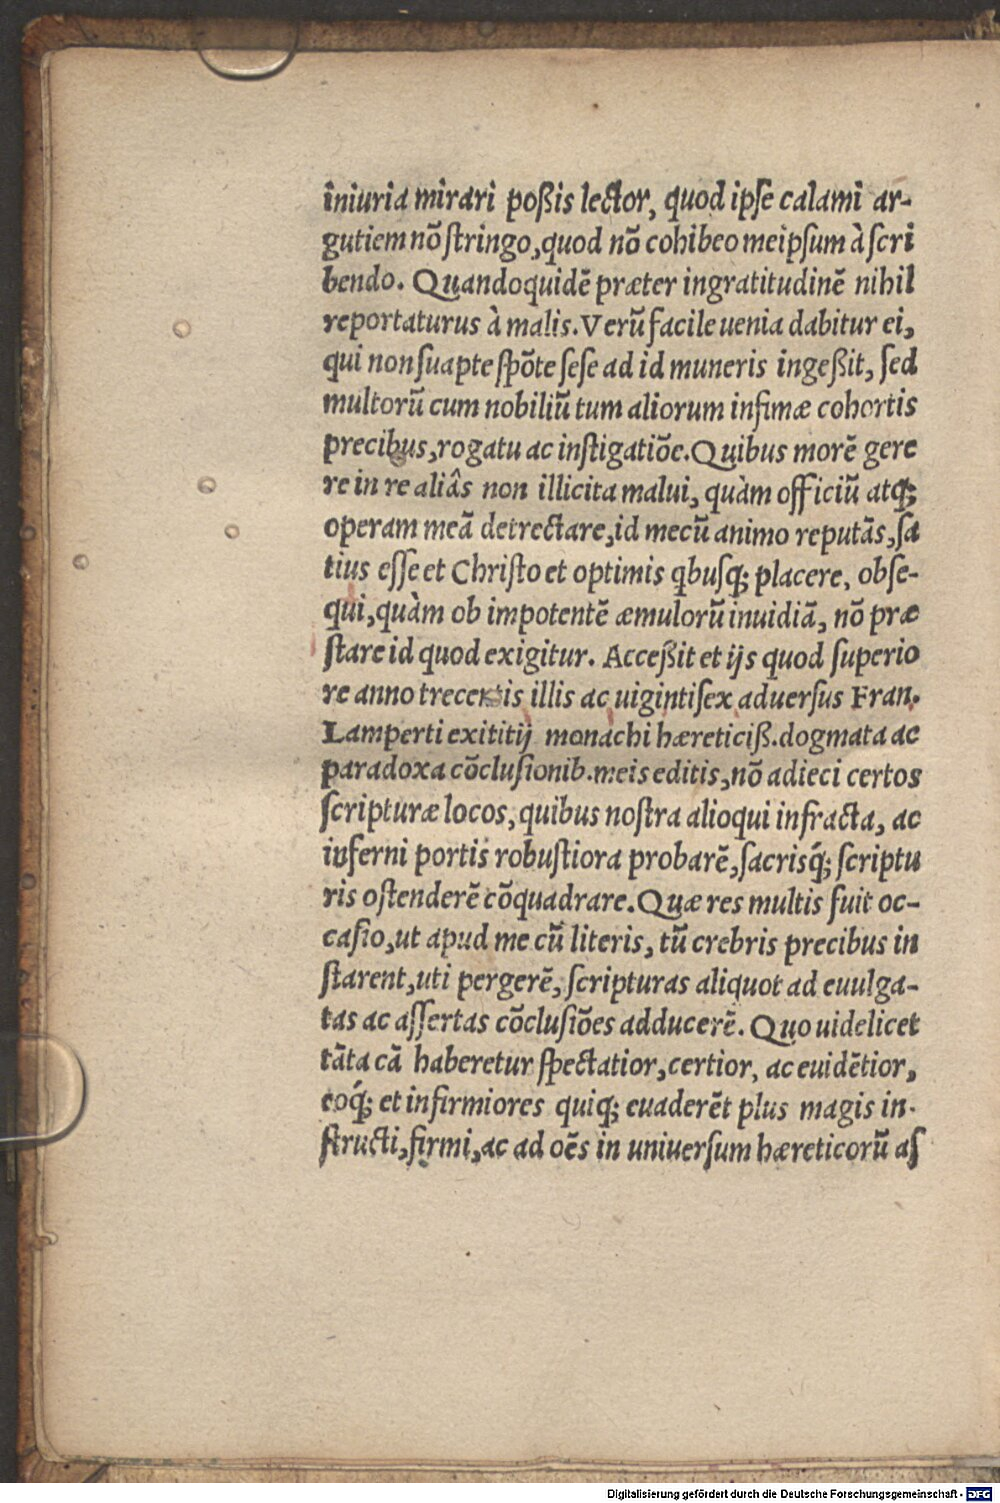 iniuria mirari poßis lector, quod ipſe calami ar-
gutiem nō ſtringo, quod nō cohibeo meipſum à ſcri
bendo. Quandoquidē præter ingratitudinē nihil
reportaturus à malis. Verū facile uenia dabitur ei,
qui non ſuapte ſpōte ſeſe ad id muneris ingeßit, ſed
multorū cum nobiliū tum aliorum infimæ cohortis
precibus, rogatu ac inſtigatiōe. Quibus morē gere
re in re aliâs non illicita malui, quàm officiū atq;
operam meā detrectare, id mecū animo reputās, ſa
tius eſſe et Chriſto et optimis qbuſq; placere, obſe-
qui, quàm ob impotentē æmulorū inuidiā, nō præ
ſtare id quod exigitur. Acceßit et ijs quod ſuperio
re anno trecentis illis ac uigintiſex aduerſus Fran.
Lamperti exititij monachi hæreticiß. dogmata ac
paradoxa cōcluſionib. meis editis, nō adieci certos
ſcripturæ locos, quibus noſtra alioqui infracta, ac
inferni portis robuſtiora probarē, ſacrisq́; ſcriptu
ris oſtenderē cōquadrare. Quæ res multis fuit oc-
caſio, ut apud me cū literis, tū crebris precibus in
ſtarent, uti pergerē, ſcripturas aliquot ad euulga-
tas ac aſſertas cōcluſiōes adducerē. Quo uidelicet
tāta cā haberetur ſpectatior, certior, ac euidētior,
eoq́; et infirmiores quiq; euaderēt plus magis in-
ſtructi, firmi, ac ad oēs in uniuerſum hæreticorū aſ
Digitalisierung gefördert durch die Deutsche Forschungsgemeinschaft - DFG